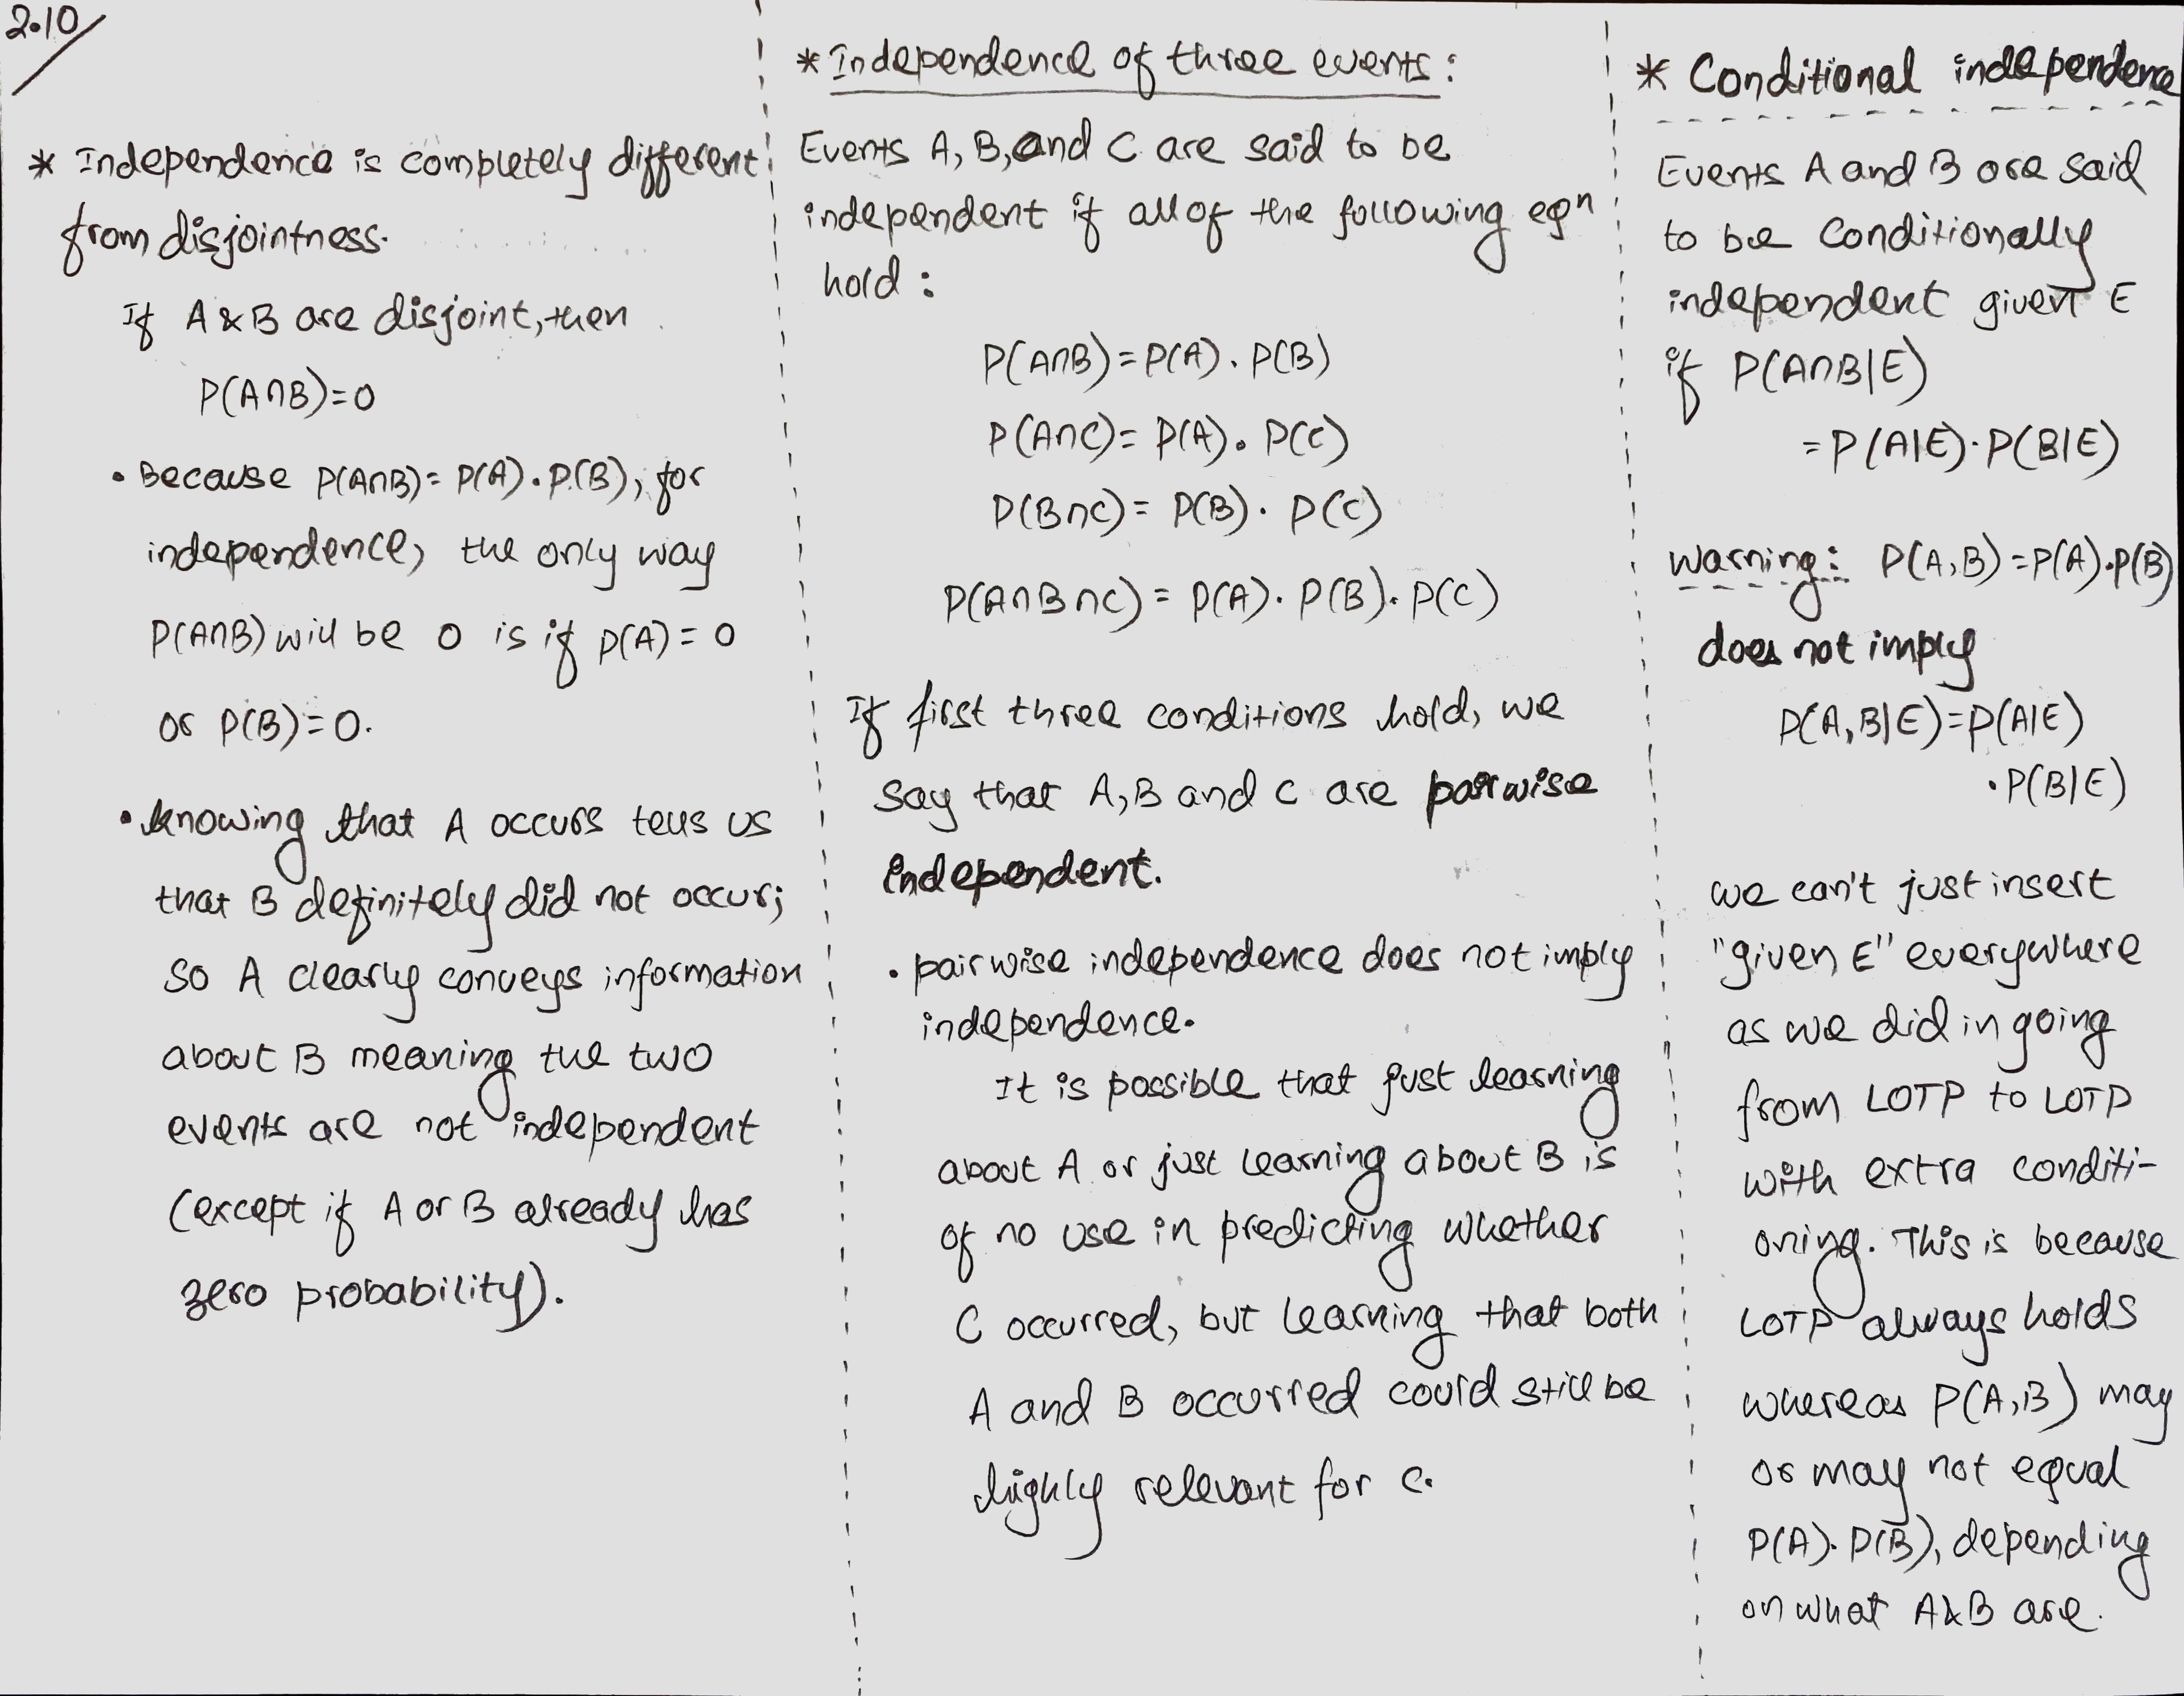 2.10
* Independence is completely different
from disjointness.
If A & B are disjoint, then
P(A∩B)=0
• Because P(A∩B)= P(A).P(B), for
independence, the only way
P(A∩B) will be 0 is if P(A) = 0
or P(B)=0.
• knowing that A occurs tells us
that B definitely did not occur;
so A clearly conveys information
about B meaning the two
events are not independent
(except if A or B already has
zero probability).
* Independence of three events:
Events A, B, and C are said to be
independent if all of the following eqn
hold:
P(A∩B)=P(A). P(B)
P(A∩C)= P(A). P(C)
P(B∩C)= P(B). P(C)
P(A∩B∩C) = P(A). P(B). P(C)
If first three conditions hold, we
say that A, B and C are pairwise
independent.
• pairwise independence does not imply
independence.
It is possible that just learning
about A or just learning about B is
of no use in predicting whether
C occurred, but learning that both
A and B occurred could still be
highly relevant for C.
* Conditional independence
Events A and B are said
to be Conditionally
independent given E
if P(A∩B|E)
= P(A|E)·P(B|E)
Warning: P(A,B)=P(A).P(B)
does not imply
P(A,B|E)=P(A|E)
·P(B|E)
we can't just insert
"given E" everywhere
as we did in going
from LOTP to LOTP
with extra conditi-
oning. This is because
LOTP always holds
whereas P(A,B) may
or may not equal
P(A). P(B), depending
on what A&B are.